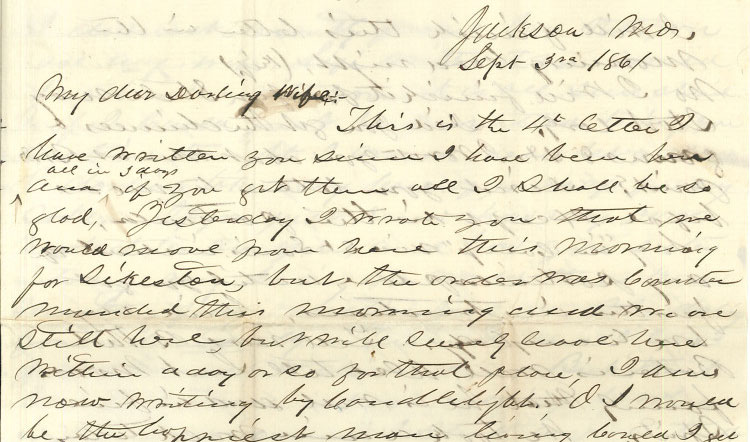 Jackson Mo,
Sept 3rd 1861
My dear Darling Wife:-
This is the 4th letter I
have written you since I have been here
all in 3 days
and if you get them all I shall be so
glad, Yesterday I wrote you that we
would move from here this morning
for Sikeston, but the order was Counter
manded this morning and we are
still here, but will surely leave here
within a day or so for that place, I am
now writing by Candlelight. O I would
be the happiest man living Could I